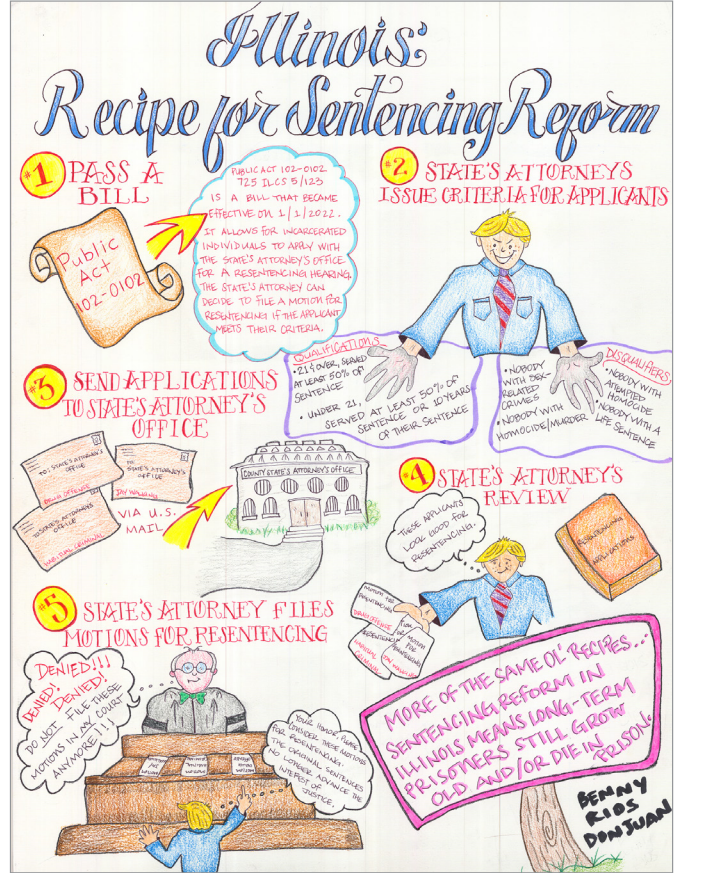 Illinois:
Recipe for Sentencing Reform
#1 PASS A
BILL
Public
Act
102-0102
PUBLIC ACT 102-0102
725 ILCS 5/123
IS A BILL THAT BECAME
EFFECTIVE ON 1/1/2022.
IT ALLOWS FOR INCARCERATED
INDIVIDUALS TO APPLY WITH
THE STATE'S ATTORNEY'S OFFICE
FOR A RESENTENCING HEARING.
THE STATE'S ATTORNEY CAN
DECIDE TO FILE A MOTION FOR
RESENTENCING IF THE APPLICANT
MEETS THEIR CRITERIA.
#2 STATE'S ATTORNEYS
ISSUE CRITERIA FOR APPLICANTS
QUALIFICATIONS
• 21 & OVER, SERVED
AT LEAST 50% OF
SENTENCE
• UNDER 21,
SERVED AT LEAST 50% OF
SENTENCE OR 10 YEARS
OF THEIR SENTENCE
DISQUALIFIERS
• NOBODY
WITH SEX
RELATED
CRIMES
• NOBODY WITH
HOMOCIDE/MURDER
• NOBODY WITH
ATEMPTED
HOMOCIDE
• NOBODY WITH A
LIFE SENTENCE
#3 SEND APPLICATIONS
TO STATE'S ATTORNEY'S
OFFICE
TO: STATE'S ATTORNEY'S
OFFICE
DRUG OFFENSE
TO:
STATE'S ATTORNEY'S
OFFICE
JAY WALKING
TO: STATE'S ATTORNEY'S
OFFICE
HABITUAL CRIMINAL
VIA U.S.
MAIL
COUNTY STATE'S ATTORNEY'S OFFICE
#4 STATE'S ATTORNEY'S
REVIEW
THESE APPLICANTS
LOOK GOOD FOR
RESENTENCING.
RESENTENCING
APPLICATIONS
MOTION FOR
RESENTENCING
DRUG OFFENSE
RESENTENCING
HABITUAL
CRIMINAL
MOTION
FOR
RESENTENCING
JAY WALKING
#5 STATE'S ATTORNEY FILES
MOTIONS FOR RESENTENCING
DENIED!!!
DENIED! DENIED!
DO NOT FILE THESE
MOTIONS IN MY COURT
ANYMORE!!!
YOUR HONOR, PLEASE
CONSIDER THESE MOTIONS
FOR RESENTENCING.
THE ORIGINAL SENTENCES
NO LONGER ADVANCE THE
INTEREST OF
JUSTICE.
MORE OF THE SAME OL' RECIPES...
SENTENCING REFORM IN
ILLINOIS MEANS LONG-TERM
PRISONERS STILL GROW
OLD AND/OR DIE IN
PRISON.
BENNY
RIOS
DONJUAN